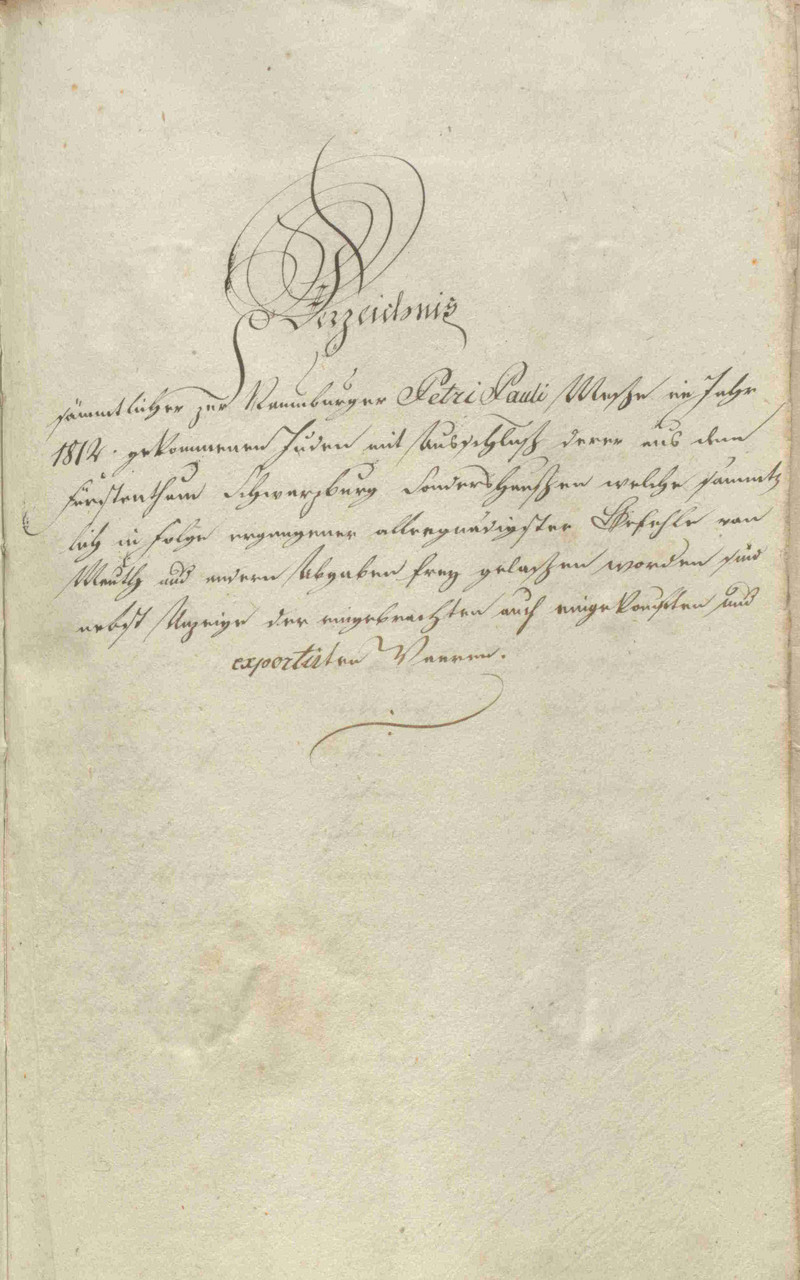 Verzeichnis
sämmtlicher zur Naumburger Petri Pauli Messe im Jahr
1812. gekommenen Juden mit Ausschluß derer aus dem
Fürstenthum Schwarzburg Sondershaußen welche sämmt-
lich in Folge ergangener allergnädigster Befehle von
Mauth und andern Abgaben frey gelaßen worden sind
nebst Anzeige der eingebrachten auch eingekauften und
exportirten Waaren.